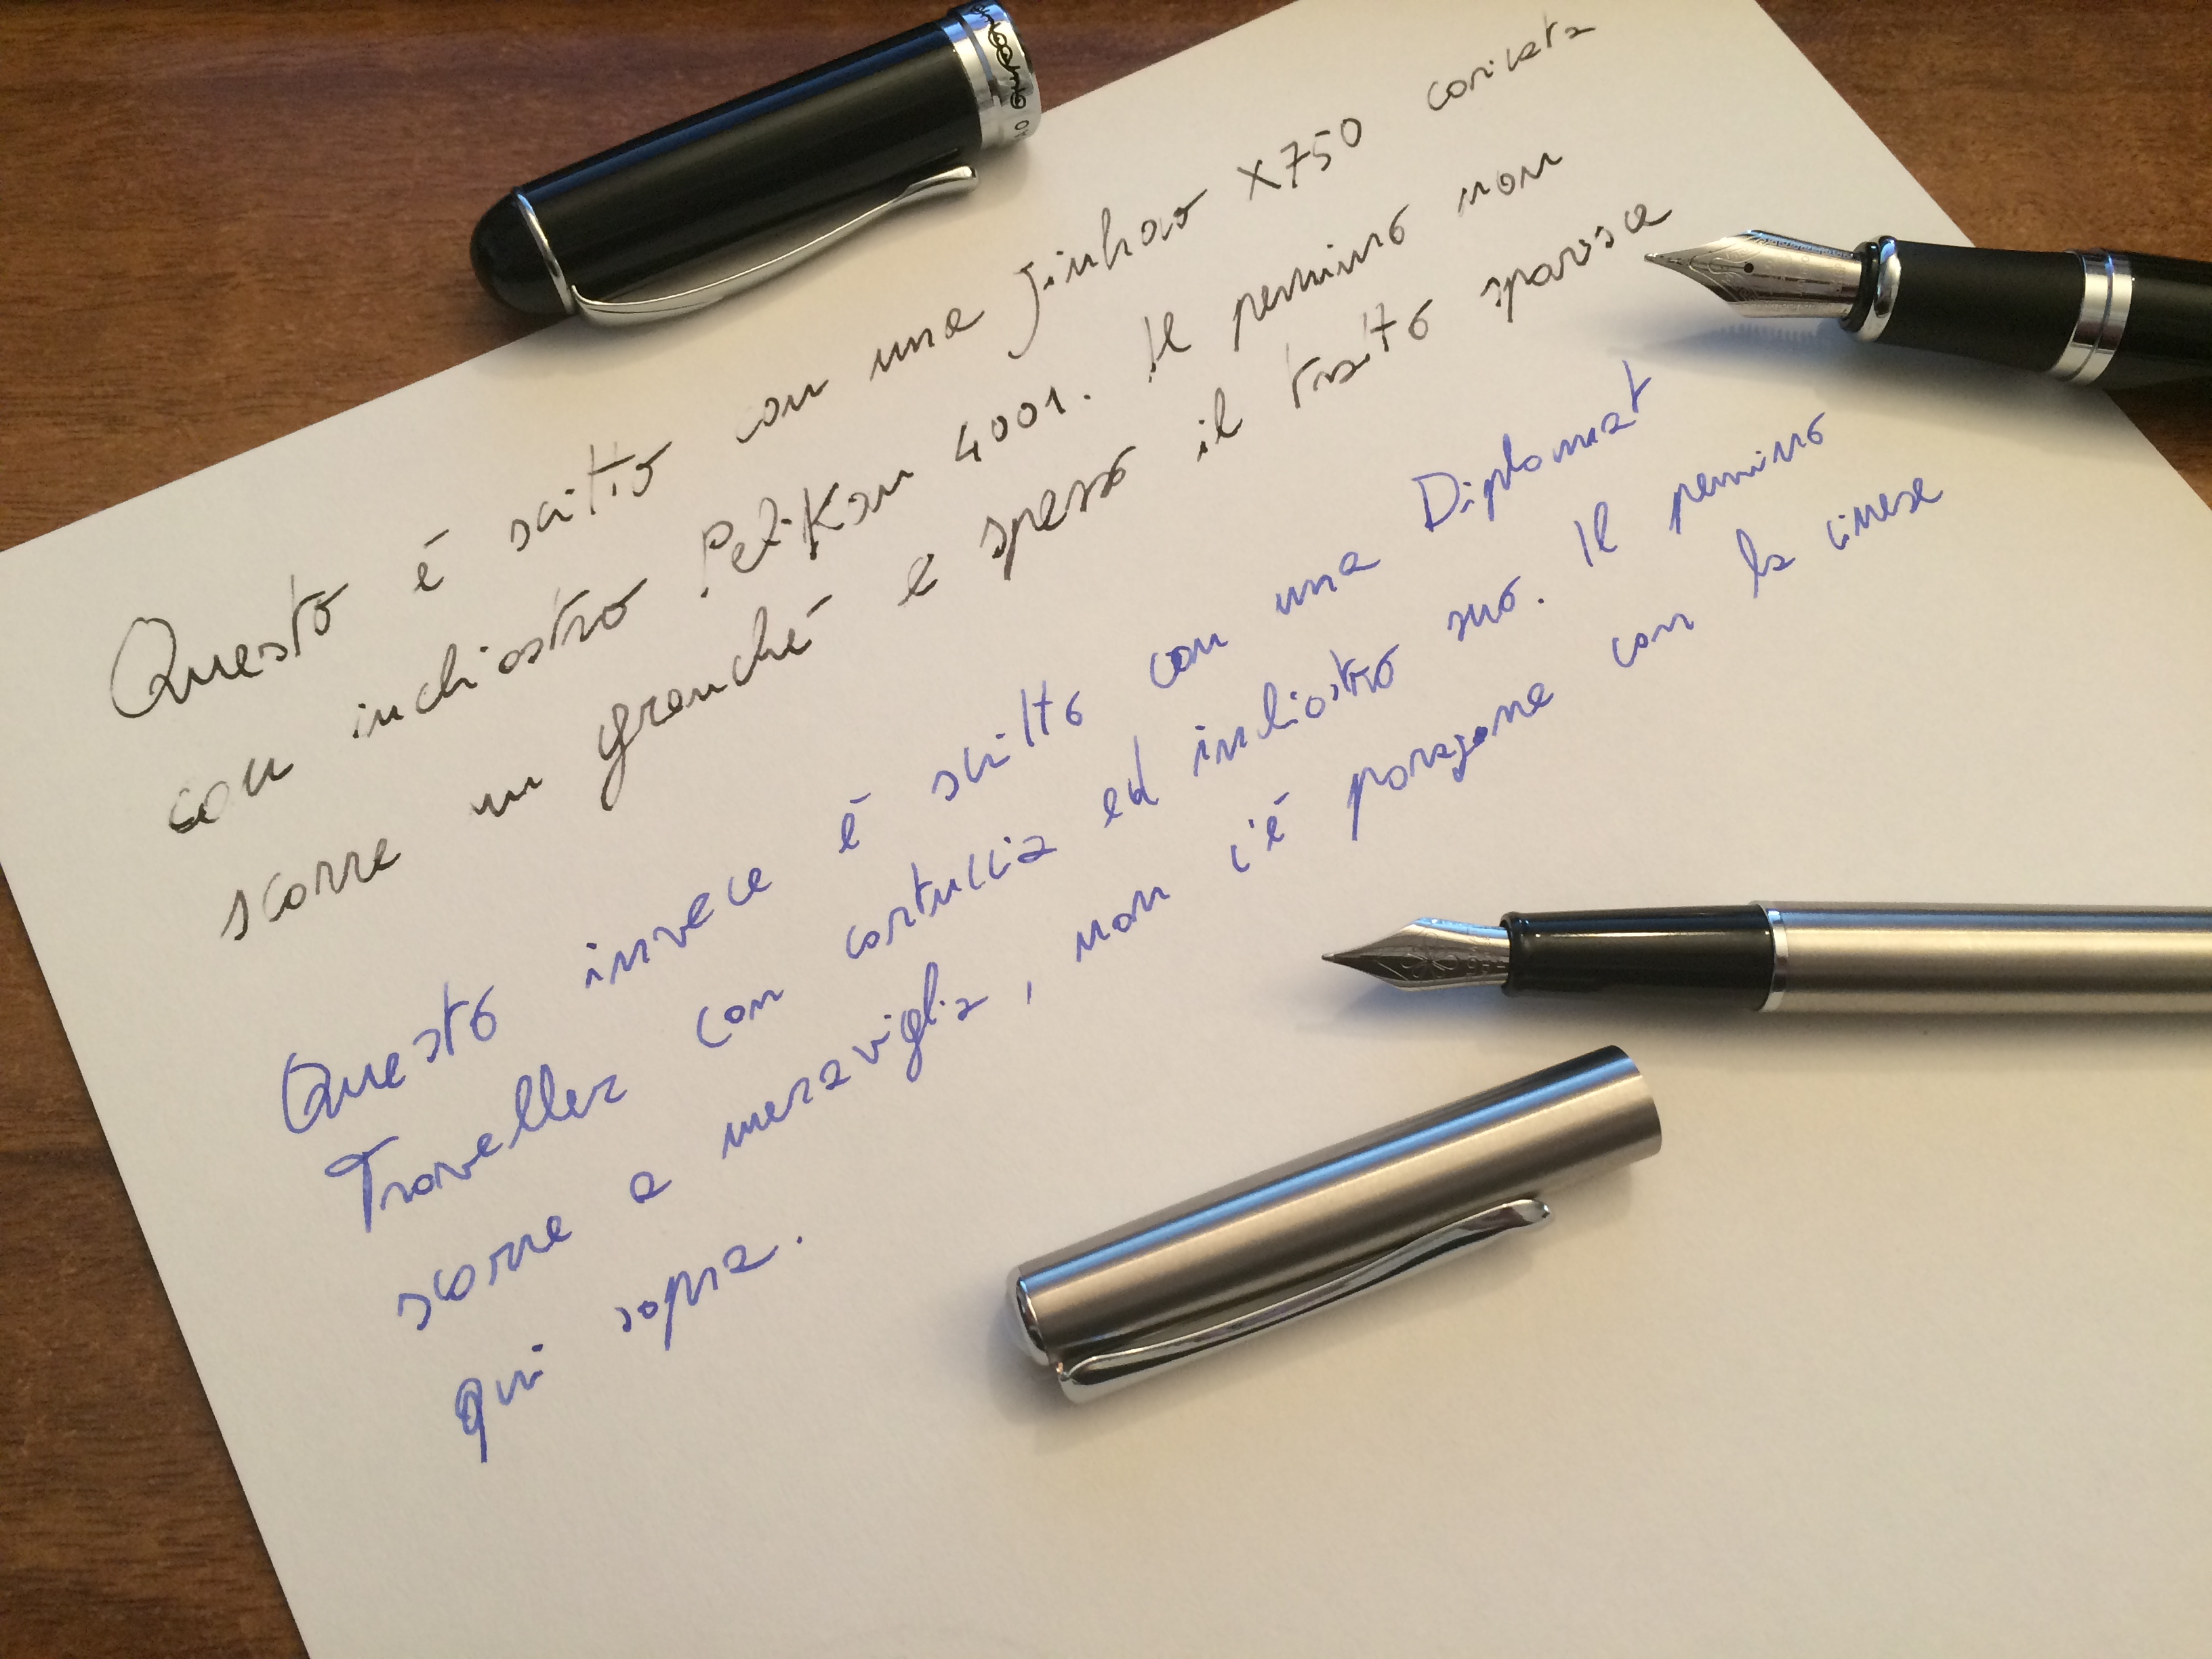 Questo è scritto con una Jinhao X750 caricata
con inchiostro Pelikan 4001. Il pennino non
scorre un granché e spesso il tratto sparisce
Questo invece è scritto con una Diplomat
Traveller con cartuccia ed inchiostro suo. Il pennino
scorre a meraviglia, non c'è paragone con la cinese
qui sopra.